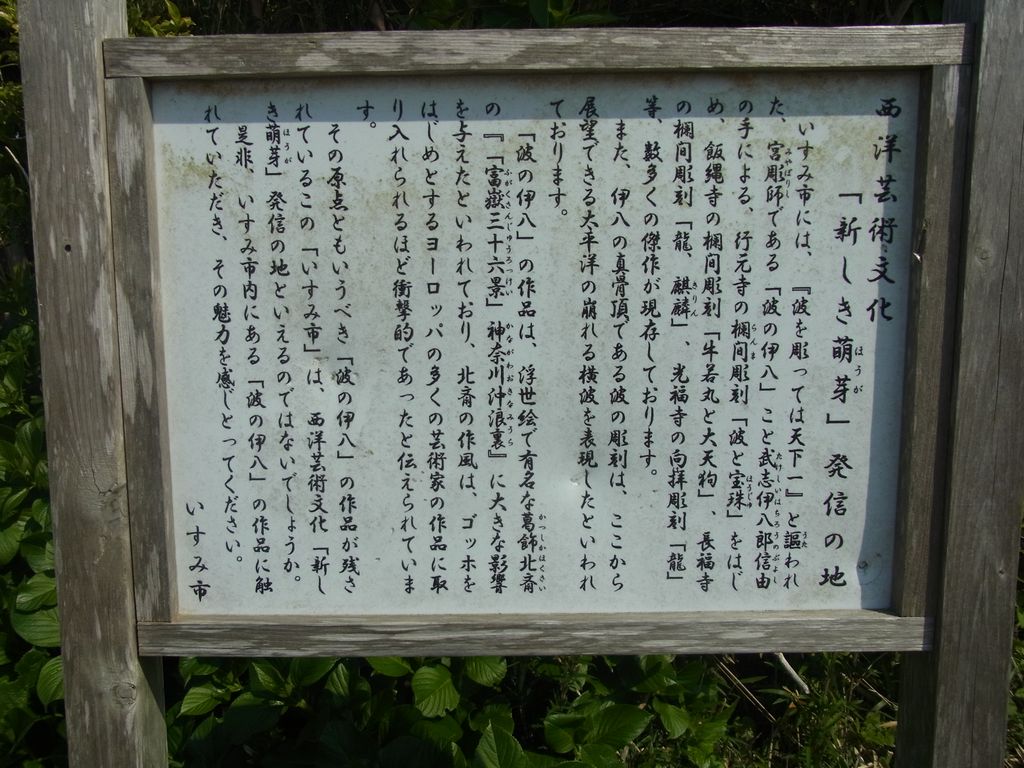 西洋芸術・文化
「新しき萌芽」発信の地
いすみ市には、『波を彫っては天下一』と謳われ
た、宮彫師である「波の伊八」こと武志伊八郎信由
の手による、行元寺の欄間彫刻「波と宝珠」をはじ
め、飯縄寺の欄間彫刻「牛若丸と大天狗」、長福寺
の欄間彫刻「龍、麒麟」、光福寺の向拝彫刻「龍」
等、数多くの傑作が現存しております。
また、伊八の真骨頂である波の彫刻は、ここから
展望できる太平洋の崩れる横波を表現したといわれ
ております。
「波の伊八」の作品は、浮世絵で有名な葛飾北斎
の『「富嶽三十六景」神奈川沖浪裏』に大きな影響
を与えたといわれており、北斎の作風は、ゴッホを
はじめとするヨーロッパの多くの芸術家の作品に取
り入れられるほど衝撃的であったと伝えられていま
す。
その原点ともいうべき「波の伊八」の作品が残さ
れているこの「いすみ市」は、西洋芸術文化「新し
き萌芽」発信の地といえるのではないでしょうか。
是非、いすみ市内にある「波の伊八」の作品に触
れていただき、その魅力を感じとってください。
いすみ市